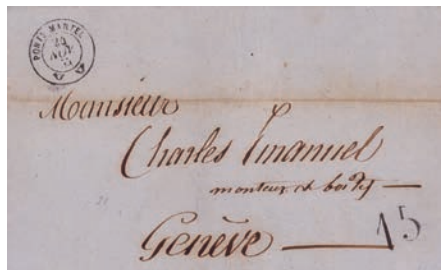 PONTS MARTEL
24
NOV
Monsieur
Charles Emanuel
monteur de boites
Genève
15